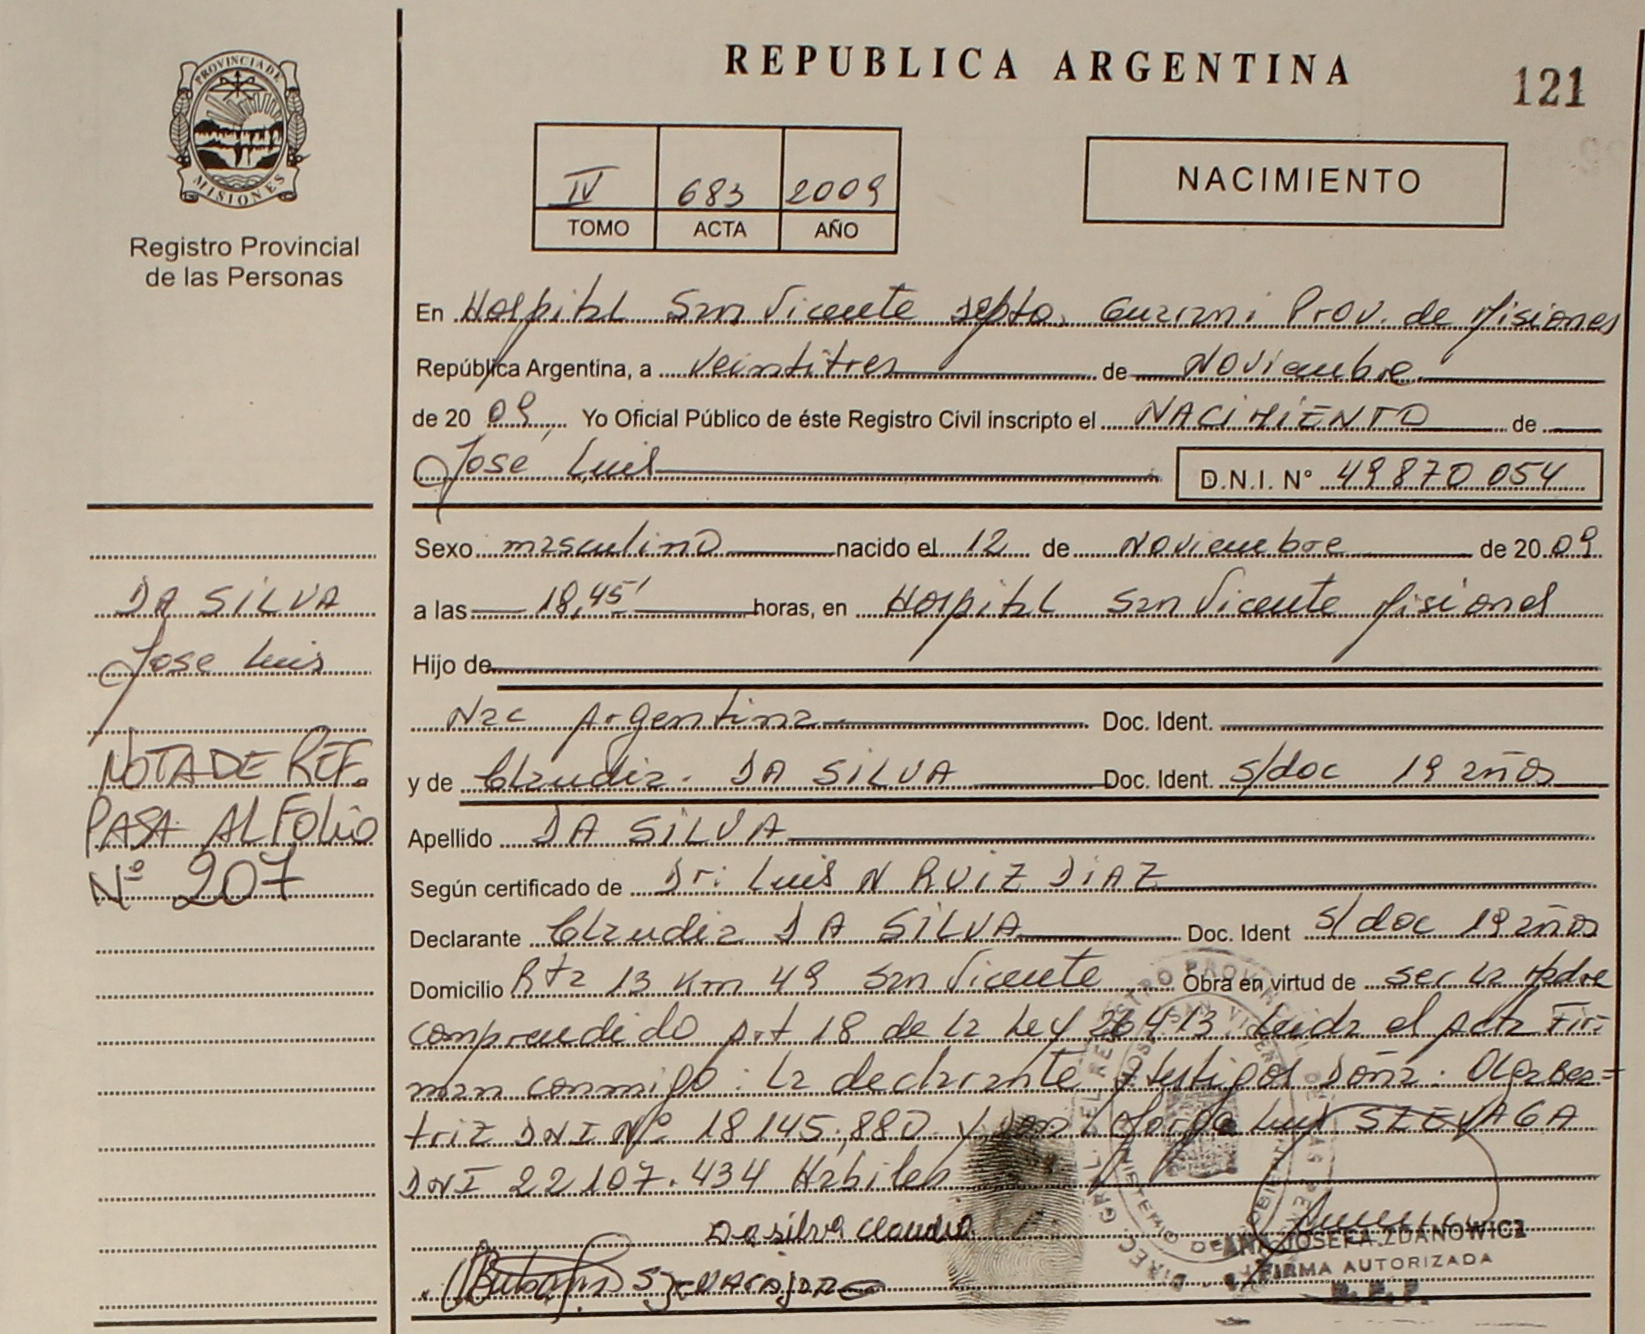 PROVINCIA DE
MISIONES
Registro Provincial
de las Personas
REPUBLICA ARGENTINA
121
IV 683 2009
TOMO ACTA AÑO
NACIMIENTO
En Hospital San Vicente depto. Guarani Prov. de Misiones
República Argentina, a veintitres de Noviembre
de 20 09, Yo Oficial Público de éste Registro Civil inscripto el NACIMIENTO de
Jose Luis D.N.I. N° 49870 054
Sexo masculino nacido el 12 de Noviembre de 20 09
a las 18,45' horas, en Hospital San Vicente Misiones
Hijo de
Nac Argentina Doc. Ident.
y de Claudia. DA SILVA Doc. Ident. s/doc 19 años
Apellido DA SILVA
Según certificado de Dr: Luis N RUIZ DIAZ
Declarante Claudia DA SILVA Doc. Ident s/doc 19 años
Domicilio Rta 13 Km 49 San Vicente Obra en virtud de ser la Madre
comprendido Art 18 de la Ley 26413. Leida el Acta Fir=
man conmigo: la declarante y testigos Doña. Olga Bea=
triz DNI N° 18145.880 y Don Jorge Luis SZEVAGA
DNI 22107.434 Habiles
Da silva claudia
ANA JOSEFA ZDANOWICZ
FIRMA AUTORIZADA
DA SILVA
Jose Luis
NOTA DE REF.
PASA AL FOLIO
N° 207